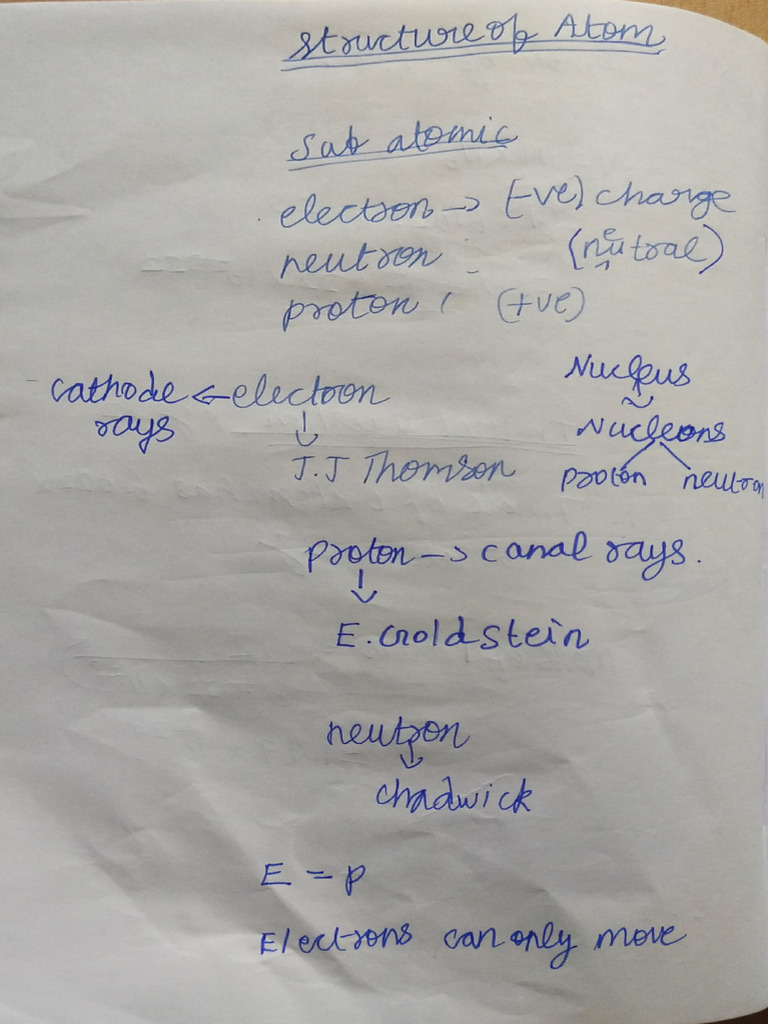 Structure of Atom
Sub atomic
electron → (-ve) charge
neutron : (neutral)
proton ( (+ve)
cathode ← electron
rays
↓
J.J Thomson
Nucleus
Nucleons
proton neutron
proton → canal rays.
↓
E. Goldstein
neutron
↓
chadwick
E = p
Electrons can only move